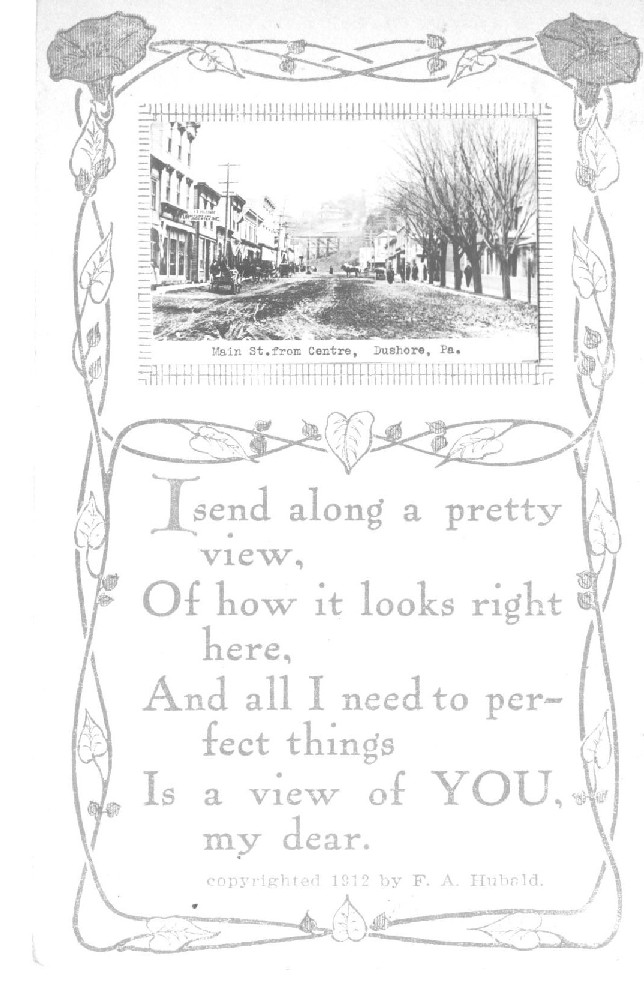 Main St.from Centre, Dushore, Pa.
I send along a pretty
view,
Of how it looks right
here,
And all I need to per-
fect things
Is a view of YOU,
my dear.
copyrighted 1912 by F. A. Hubald.